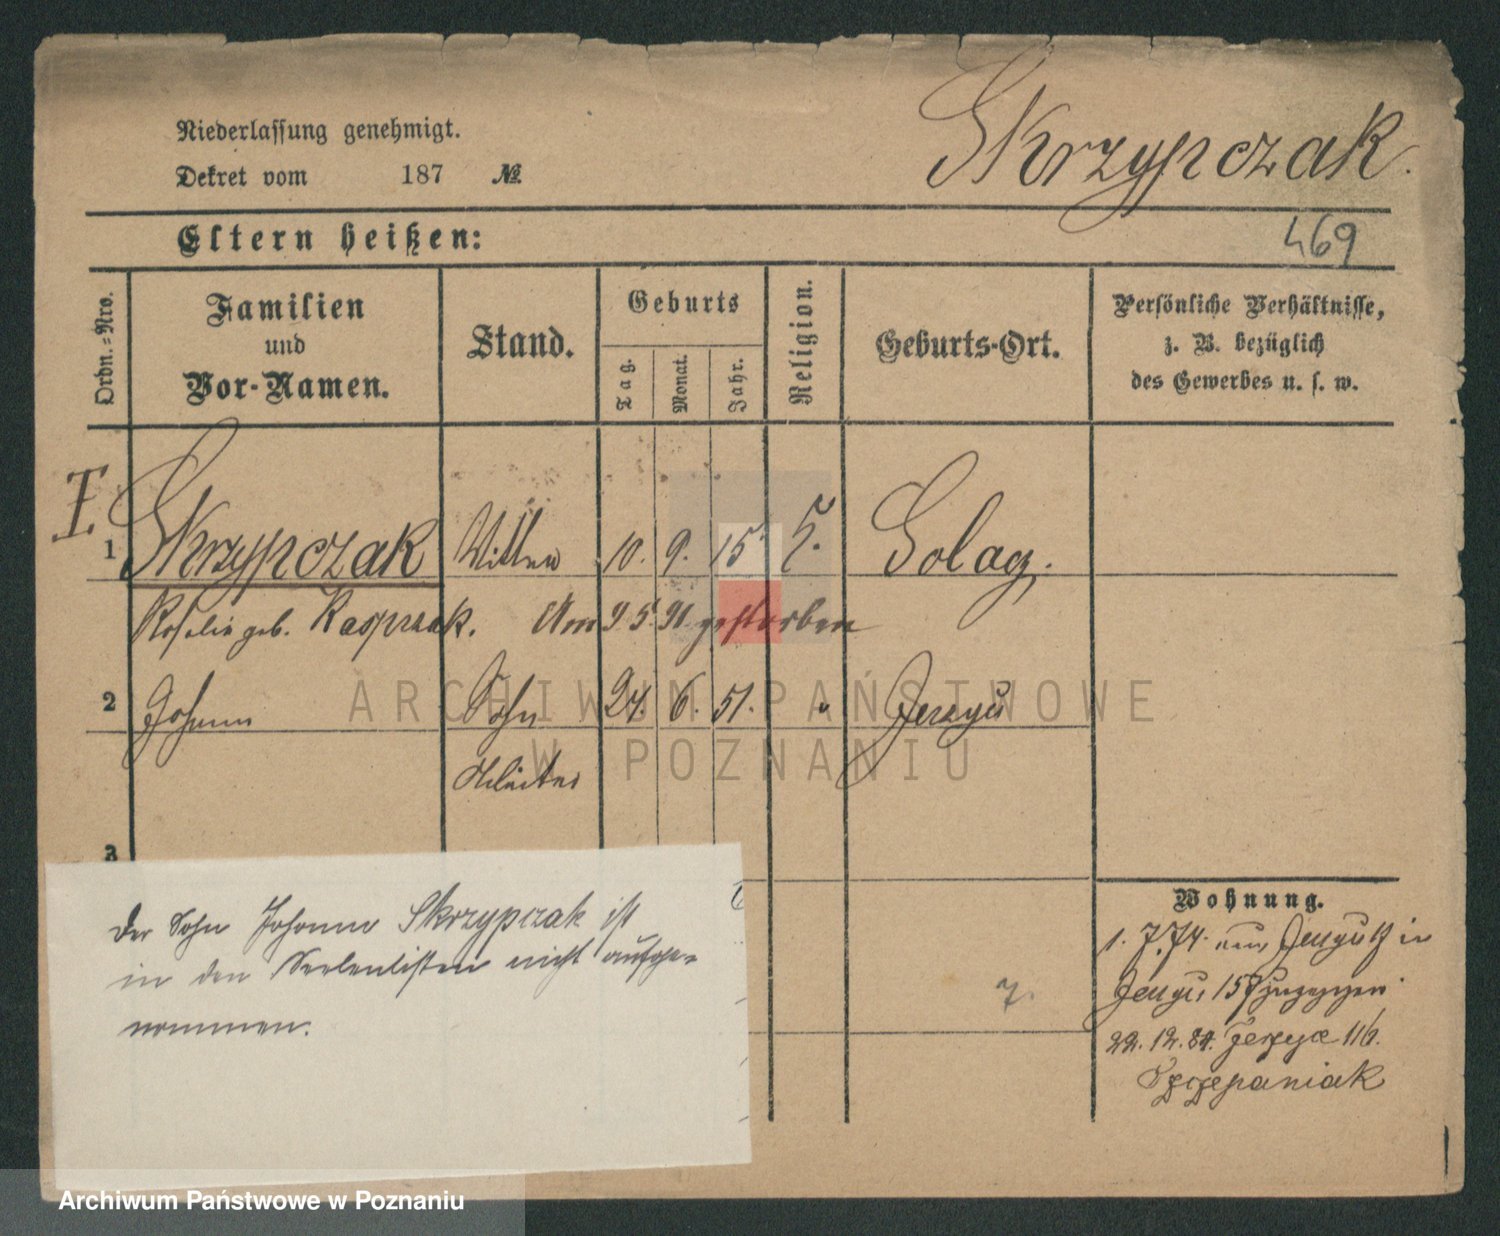 Skrzypczak.
Niederlassung genehmigt.
Dekret vom 187 №
Eltern heißen:
469
Ordn.=Nro.
Familien
und
Vor-Namen.
Stand.
Geburts
Tag.
Monat.
Jahr.
Religion.
Geburts-Ort.
Persönliche Verhältnisse,
z. B. bezüglich
des Gewerbes u. s. w.
I
1 Skrzypczak Wittwe 10. 9. 15.
Rosalie geb. Kasprzak. Am 9 5. 91. gestorben
2 Johann Sohn 24. 6. 51. " Jerzyce
Arbeiter
3
Der Sohn Johann Skrzypczak ist
in den Seelenlisten nicht aufge=
nommen.
Wohnung.
1. 7. 74. in
zugezogen
22. 12. Jerzyce 116.
Szczepaniak
7.
ARCHIWUM PAŃSTWOWE
W POZNANIU
Archiwum Państwowe w Poznaniu